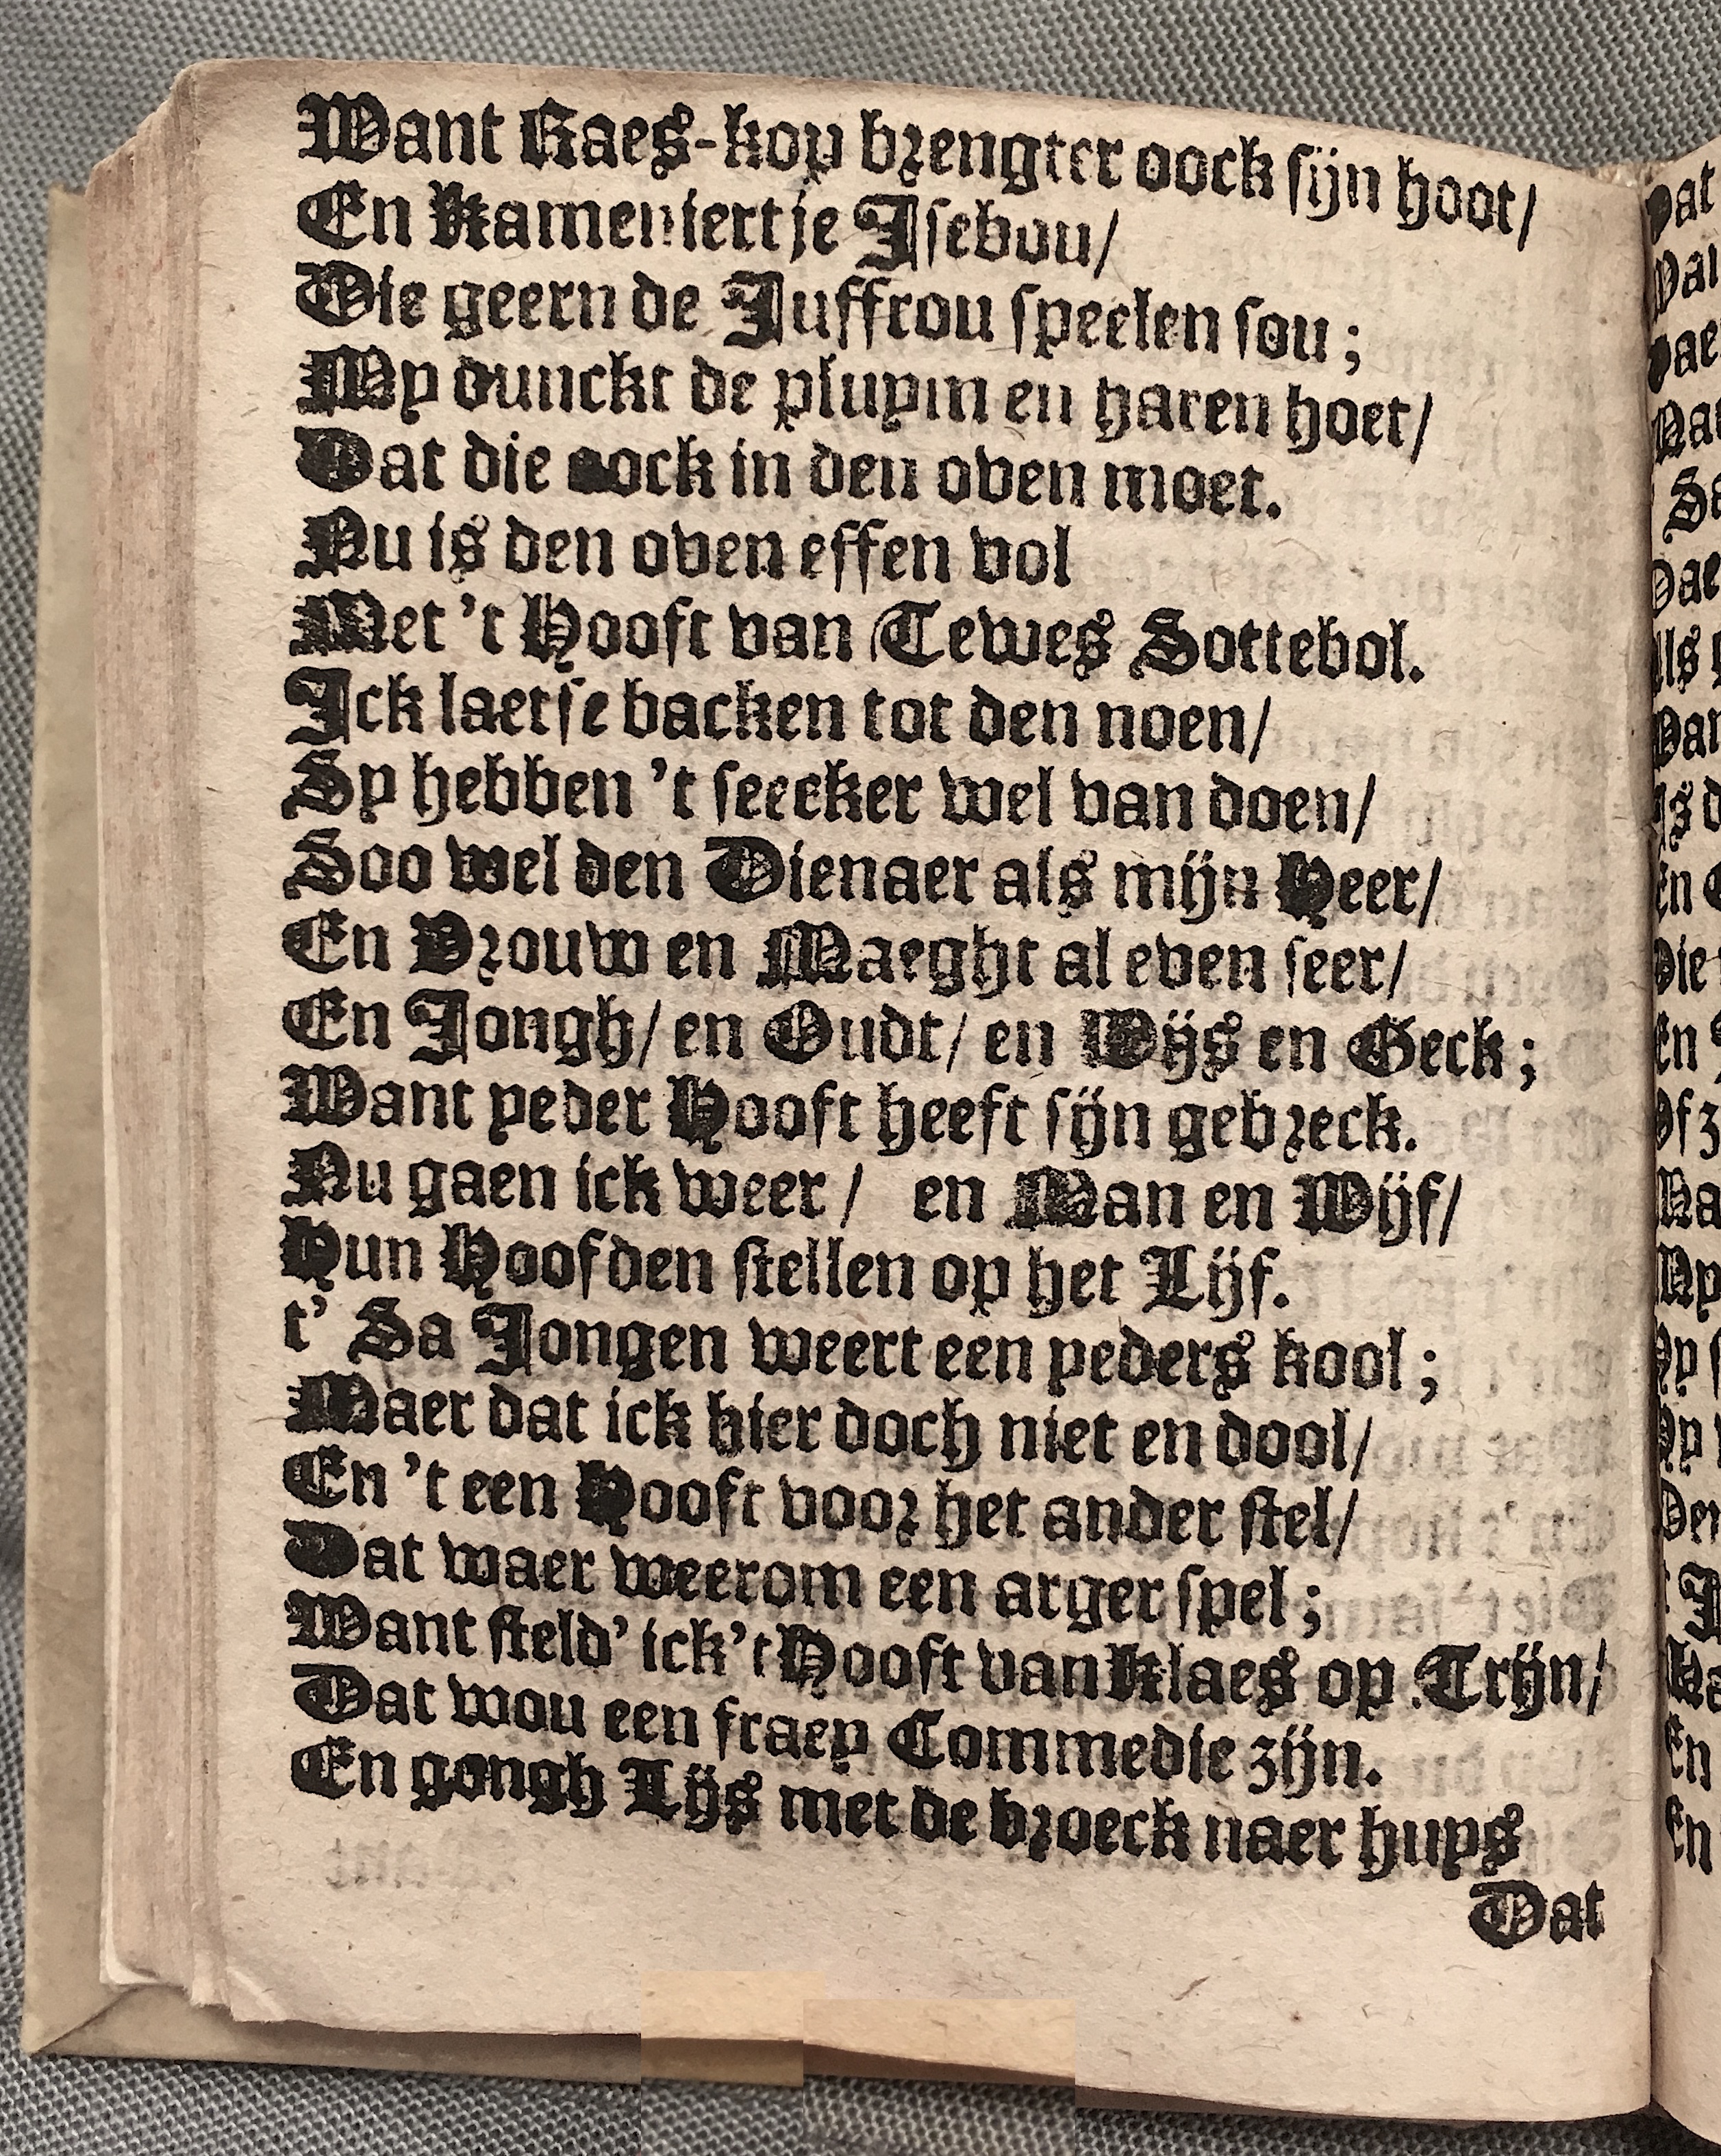 Want Raes-kop brengter oock sijn hoot/
En Kameniertje Isebou/
Die geern de Juffrou speelen sou;
My dunckt de pluym en haren hoet/
Dat die oock in den oven moet.
Nu is den oven effen vol
Met 't Hooft van Tewes Sottebol.
Ick laetse backen tot den noen/
Sy hebben 't seecker wel van doen/
Soo wel den Dienaer als mijn Heer/
En Vrouw en Maeght al even seer/
En Jongh/ en Oudt/ en Wijs en Geck;
Want yeder Hooft heeft sijn gebreck.
Nu gaen ick weer/ en Man en Wijf/
Hun Hoofden stellen op het Lijf.
t' Sa Jongen weert een yeders kool;
Maer dat ick hier doch niet en dool/
En 't een Hooft voor het ander stel/
Dat waer weerom een arger spel;
Want steld' ick 't Hooft van Klaes op Trijn/
Dat wou een fraey Commedie zijn.
En gongh Lijs met de broeck naer huys
Dat